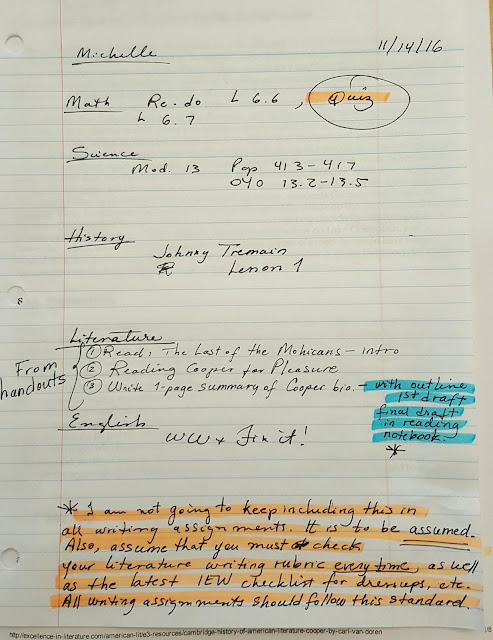 Michelle 11/14/16
Math Re-do L 6.6, Quiz
L 6.7
Science Mod. 13 Pop 413-417
OYO 13.2-13.5
History
Johnny Tremain
Lesson 1
8
Literature
From handouts
① Read: The Last of the Mohicans - intro
② Reading Cooper for Pleasure
③ Write 1-page summary of Cooper bio. - with outline
1st draft
final draft
in reading
notebook.
*
English
WW + Fix it!
* I am not going to keep including this in
all writing assignments. It is to be assumed.
Also, assume that you must check
your literature writing rubric every time, as well
as the latest IEW checklist for dressups, etc.
All writing assignments should follow this standard.
http://excellence-in-literature.com/american-lit/e3-resources/cambridge-history-of-american-literature-cooper-by-carl-van-doren